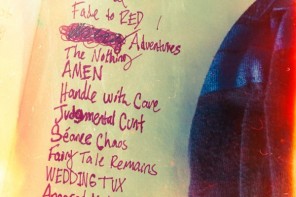 Fade to RED!
Adventures
The Nothing
AMEN
Handle with Care
Judgmental Cunt
Séance Chaos
Fairy Tale Remains
WEDDING TUX